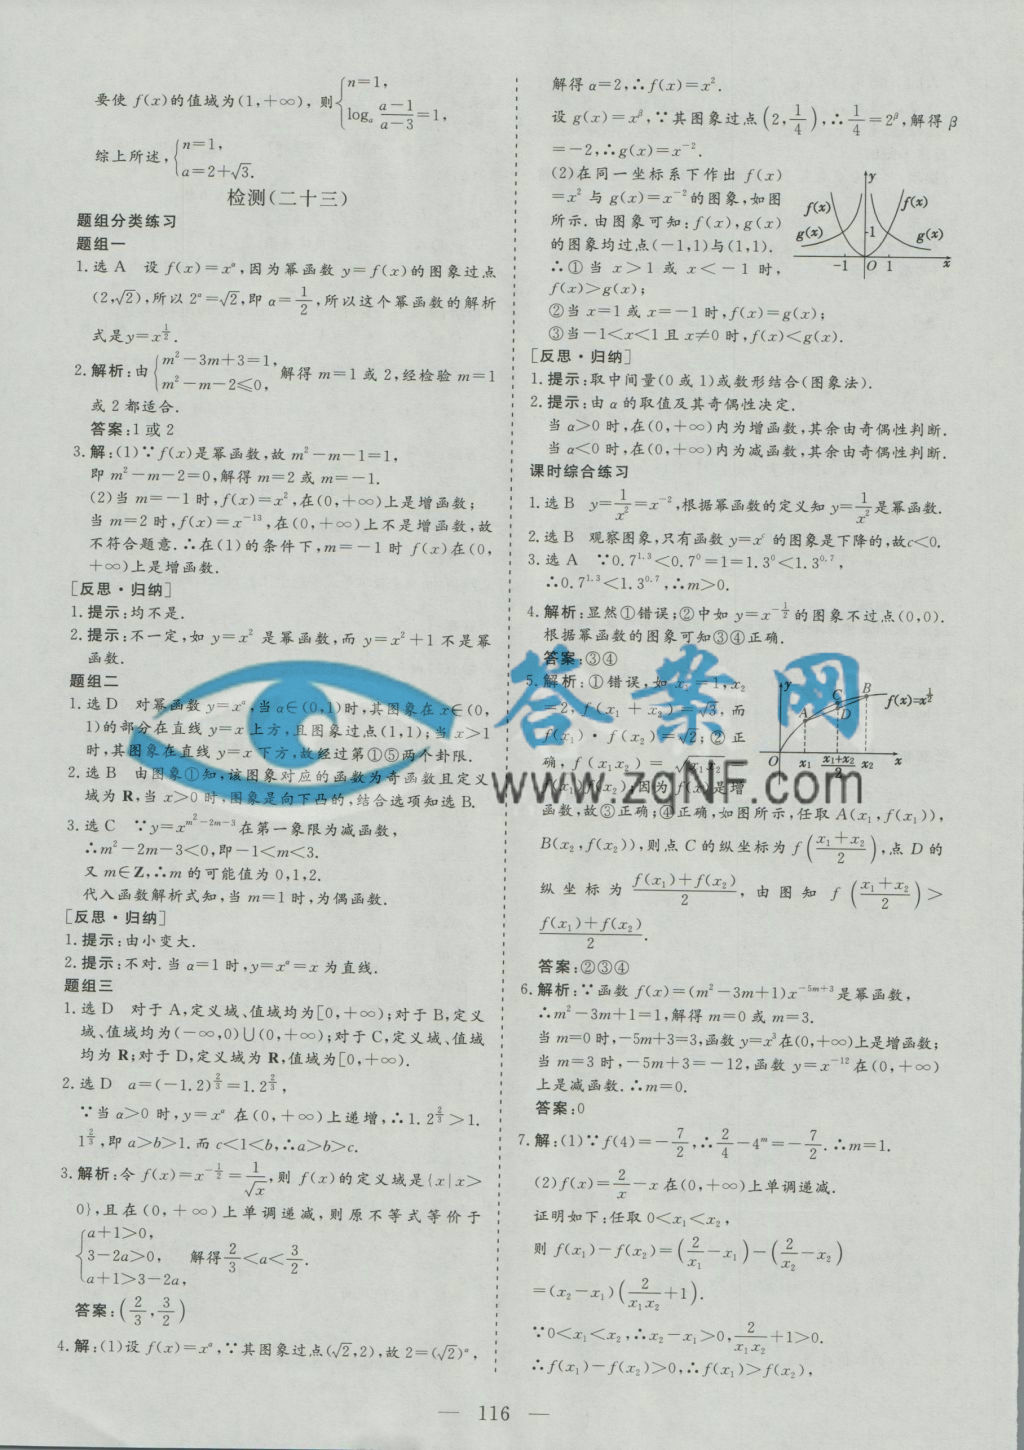 要使 f(x)的值域为(1,+∞), 则{n=1, logₐ (a-1)/(a-3)=1,
综上所述, {n=1, a=2+√3.
检测(二十三)
题组分类练习
题组一
1.选 A 设 f(x)=x^α,因为幂函数 y=f(x)的图象过点
(2,√2),所以 2^α=√2,即 α=1/2,所以这个幂函数的解析
式是y=x^(1/2).
2.解析:由{m²-3m+3=1, m²-m-2≤0, 解得 m=1 或 2,经检验 m=1
或 2 都适合.
答案:1 或 2
3.解:(1)∵f(x)是幂函数,故 m²-m-1=1,
即 m²-m-2=0,解得 m=2 或 m=-1.
(2)当 m=-1 时,f(x)=x²,在(0,+∞)上是增函数;
当 m=2 时,f(x)=x^(-13),在(0,+∞)上不是增函数,故
不符合题意.∴在(1)的条件下,m=-1 时 f(x)在(0,
+∞)上是增函数.
[反思·归纳]
1.提示:均不是.
2.提示:不一定,如 y=x² 是幂函数,而 y=x²+1 不是幂
函数.
题组二
1.选 D 对幂函数 y=x^α,当 α∈(0,1)时,其图象在 x∈(0,
1)的部分在直线 y=x 上方,且图象过点(1,1);当 x>1
时,其图象在直线 y=x 下方,故经过第①⑤两个卦限.
2.选 B 由图象①知,该图象对应的函数为奇函数且定义
域为 R,当 x>0 时,图象是向下凸的,结合选项知选 B.
3.选 C ∵y=x^(m²-2m-3)在第一象限为减函数,
∴m²-2m-3<0,即-1<m<3.
又 m∈Z,∴m 的可能值为 0,1,2.
代入函数解析式知,当 m=1 时,为偶函数.
[反思·归纳]
1.提示:由小变大.
2.提示:不对.当 α=1 时,y=x^α=x 为直线.
题组三
1.选 D 对于 A,定义域、值域均为[0,+∞);对于 B,定义
域、值域均为(-∞,0)∪(0,+∞);对于 C,定义域、值域
均为 R;对于 D,定义域为 R,值域为[0,+∞).
2.选 D a=(-1.2)^(2/3)=1.2^(2/3),
∵当 α>0 时,y=x^α 在(0,+∞)上递增,∴1.2^(2/3)>1.
1^(2/3),即 a>b>1.而 c<1<b,∴a>b>c.
3.解析:令 f(x)=x^(-1/2)=1/√x,则 f(x)的定义域是{x|x>
0},且在(0,+∞)上单调递减,则原不等式等价于
{a+1>0, 3-2a>0, a+1>3-2a, 解得 2/3<a<3/2.
答案:(2/3,3/2)
4.解:(1)设 f(x)=x^α,∵其图象过点(√2,2),故 2=(√2)^α,
解得 α=2,∴f(x)=x².
设 g(x)=x^β,∵其图象过点(2,1/4),∴1/4=2^β,解得 β
=-2,∴g(x)=x^(-2).
(2)在同一坐标系下作出 f(x)
=x² 与 g(x)=x^(-2)的图象,如图
所示.由图象可知:f(x),g(x)
的图象均过点(-1,1)与(1,1).
∴①当 x>1 或 x<-1 时,
f(x)>g(x);
②当 x=1 或 x=-1 时,f(x)=g(x);
③当-1<x<1 且 x≠0 时,f(x)<g(x).
y
f(x) f(x)
g(x) 1 g(x)
-1 O 1 x
[反思·归纳]
1.提示:取中间量(0 或 1)或数形结合(图象法).
2.提示:由 α 的取值及其奇偶性决定.
当 α>0 时,在(0,+∞)内为增函数,其余由奇偶性判断.
当 α<0 时,在(0,+∞)内为减函数,其余由奇偶性判断.
课时综合练习
1.选 B y=1/x²=x^(-2),根据幂函数的定义知 y=1/x²是幂函数.
2.选 B 观察图象,只有函数 y=x^c 的图象是下降的,故c<0.
3.选 A ∵0.7^1.3<0.7⁰=1=1.3⁰<1.3^0.7,
∴0.7^1.3<1.3^0.7,∴m>0.
4.解析:显然①错误;②中如 y=x^(-1/2)的图象不过点(0,0).
根据幂函数的图象可知③④正确.
答案:③④
5.解析:①错误,如 x₁=1,x₂
=2,f(x₁+x₂)=√3,而
f(x₁)·f(x₂)=√2;②正
确,f(x₁x₂)=√(x₁x₂)=
f(x₁)f(x₂);因为 f(x)是增
函数,故③正确;④正确,如图所示,任取 A(x₁,f(x₁)),
B(x₂,f(x₂)),则点 C 的纵坐标为 f((x₁+x₂)/2),点 D 的
纵坐标为 (f(x₁)+f(x₂))/2,由图知 f((x₁+x₂)/2)>
(f(x₁)+f(x₂))/2.
y C B f(x)=x^(1/2)
A D
O x₁ (x₁+x₂)/2 x₂ x
答案:②③④
6.解析:∵函数 f(x)=(m²-3m+1)x^(-5m+3)是幂函数,
∴m²-3m+1=1,解得 m=0 或 m=3.
当 m=0 时,-5m+3=3,函数 y=x³在(0,+∞)上是增函数;
当 m=3 时,-5m+3=-12,函数 y=x^(-12)在(0,+∞)
上是减函数.∴m=0.
答案:0
7.解:(1)∵f(4)=-7/2,∴2/4-4^m=-7/2.∴m=1.
(2)f(x)=2/x-x 在(0,+∞)上单调递减.
证明如下:任取 0<x₁<x₂,
则 f(x₁)-f(x₂)=(2/x₁-x₁)-(2/x₂-x₂)
=(x₂-x₁)(2/(x₁x₂)+1).
∵0<x₁<x₂,∴x₂-x₁>0,2/(x₁x₂)+1>0.
∴f(x₁)-f(x₂)>0,∴f(x₁)>f(x₂),
答案网
www.zqNF.com
— 116 —